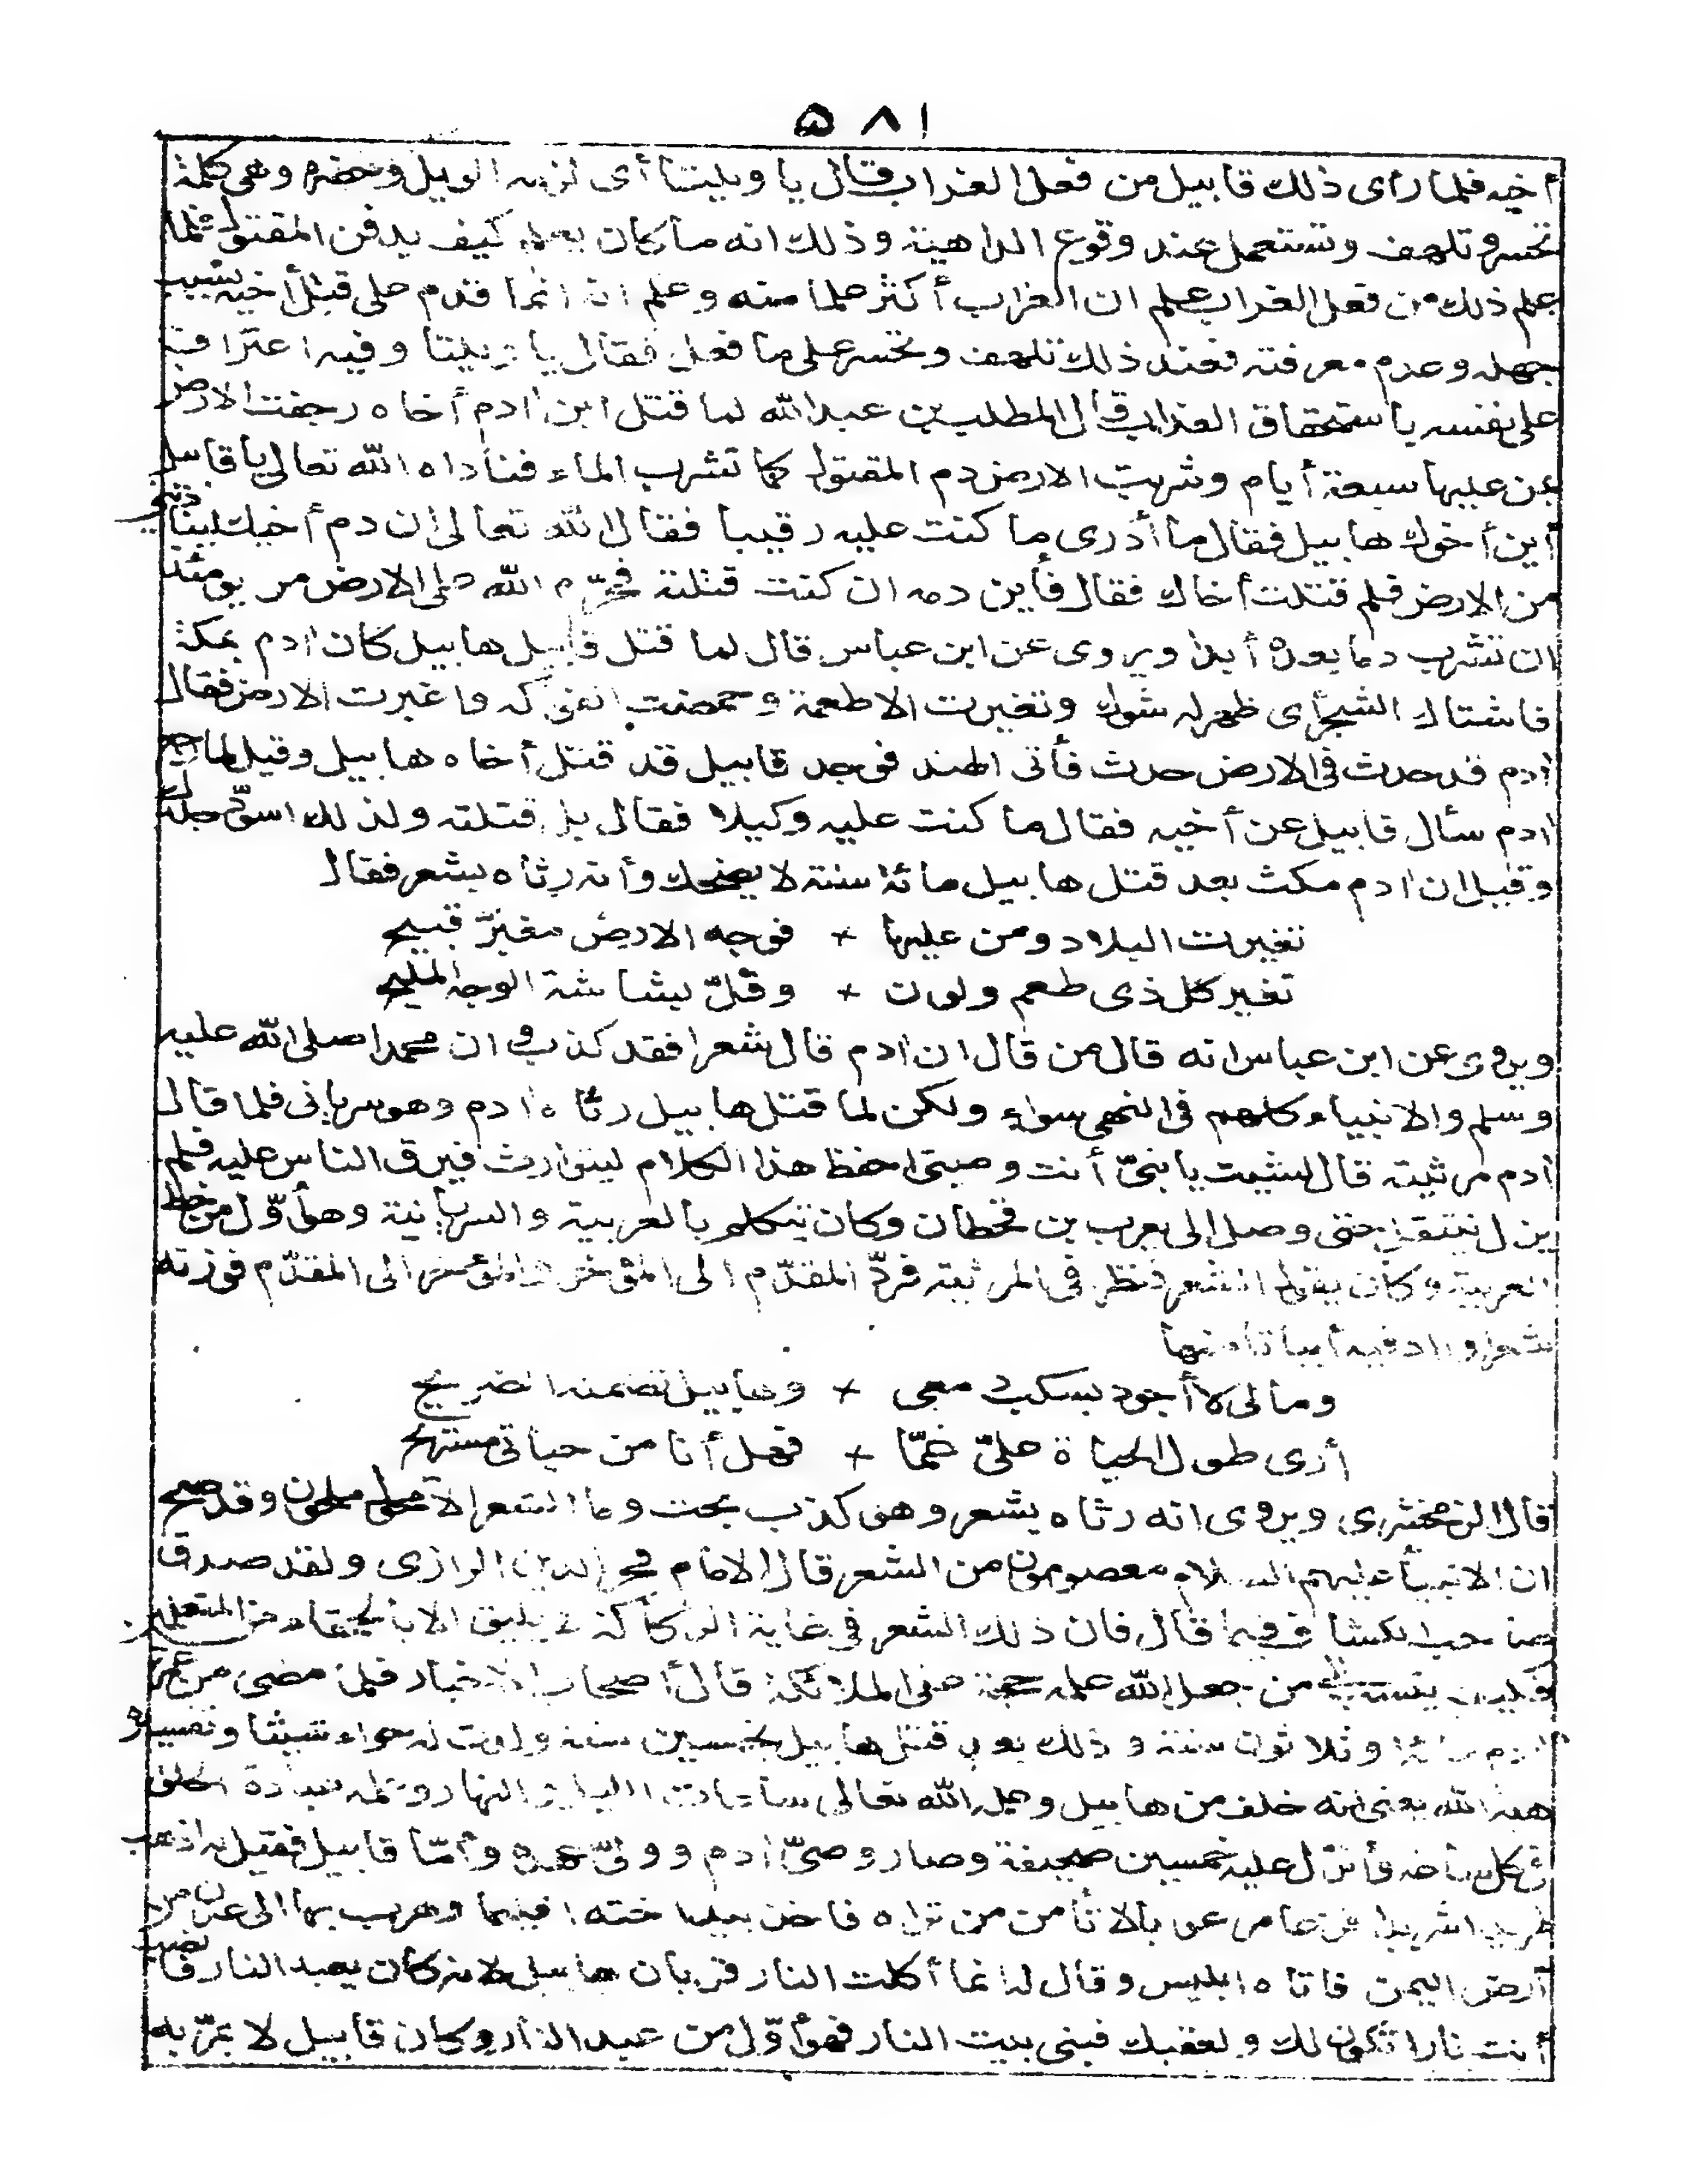 ٥٨١
أخيه فلما رأى ذلك قابيل من فعل الغراب قال يا ويلتا أى لزمه الويل وحضره وهى كلمة
تحسر وتلهف وتستعمل عند وقوع الداهية وذلك انه ما كان يعلم كيف يدفن المقتول فلما
علم ذلك من فعل الغراب علم ان الغراب أكثر علما منه وعلم انه انما قدم على قتل أخيه بسبب
جهله وعدم معرفته فعند ذلك تلهف وتحسر على ما فعل فقال يا ويلتا وفيه اعتراف
على نفسه باستحقاق العذاب قال المطلب بن عبد الله لما قتل ابن ادم أخاه رجفت الارض
بمن عليها سبعة أيام وشربت الارض دم المقتول كما تشرب الماء فناداه الله تعالى يا قابيل
أين أخوك هابيل فقال ما أدرى ما كنت عليه رقيبا فقال الله تعالى ان دم أخيك لينادينى
من الارض فلم قتلت أخاك فقال فأين دمه ان كنت قتلته فحرّم الله على الارض من يومئذ
ان تشرب دما بعده أبدا ويروى عن ابن عباس قال لما قتل قابيل هابيل كان ادم بمكة
فاشتاك الشجر أى ظهر له شوك وتغيرت الاطعمة وحمضت الفواكه واغبرت الارض فقال
ادم قد حدث فى الارض حدث فأتى الهند فوجد قابيل قد قتل أخاه هابيل وقيل لما رجع
ادم سأل قابيل عن أخيه فقال ما كنت عليه وكيلا فقال بل قتلته ولذلك اسودّ جلدك
وقيل ان ادم مكث بعد قتل هابيل مائة سنة لا يضحك وأنه رثاه بشعر فقال
تغيرت البلاد ومن عليها + فوجه الارض مغبرّ قبيح
تغير كل ذى طعم ولون + وقلّ بشاشة الوجه المليح
ويروى عن ابن عباس انه قال من قال ان ادم قال شعرا فقد كذب وان محمدا صلى الله عليه
وسلم والانبياء كلهم فى النهى سواء ولكن لما قتل هابيل رثاه ادم وهو سريانى فلما قال
ادم مرثيته قال لشيث يا بنىّ أنت وصيى احفظ هذا الكلام ليتوارث فيرق الناس عليه فلم
يزل ينتقل حتى وصل الى يعرب بن قحطان وكان يتكلم بالعربية والسريانية وهو أوّل من خط
العربية وكان يقول الشعر فنظر فى المرثية فردّ المقدّم الى المؤخر والمؤخر الى المقدّم فوزنه
شعرا وزاد فيه أبياتا منها
ومالى لا أجود بسكب دمعى + وهابيل تضمنه الضريح
أرى طول الحياة علىّ غمّا + فهل أنا من حياتى مستريح
قال الزمخشرى ويروى انه رثاه بشعر وهو كذب بحت وما الشعر الا منحول ملحون وقد صح
ان الانبياء عليهم السلام معصومون من الشعر قال الامام فخر الدين الرازى ولقد صدق
صاحب الكشاف فيما قال فان ذلك الشعر فى غاية الركاكة لا يليق الا بالحمقاء من المتعلمين
فكيف ينسب الى من جعل الله علمه حجة على الملائكة قال أصحاب الاخبار فلما مضى من عمر
ادم مائة وثلاثون سنة وذلك بعد قتل هابيل بخمسين سنة ولدت له حواء شيثا وتفسيره
هبة الله يعنى انه خلف من هابيل وعلمه الله تعالى ساعات الليل والنهار وعلمه عبادة الخلق
فى كل ساعة وأنزل عليه خمسين صحيفة وصار وصىّ ادم وولىّ عهده وأمّا قابيل فقيل له اذهب
طريدا شريدا فزعا مرعوبا لا تأمن من تراه فأخذ بيد أخته اقليما وهرب بها الى عدن من
أرض اليمن فأتاه ابليس وقال له انما أكلت النار قربان هابيل لانه كان يعبد النار فانصب
أنت نارا تكون لك ولعقبك فبنى بيت النار فهو أوّل من عبد النار وكان قابيل لا يمرّ به